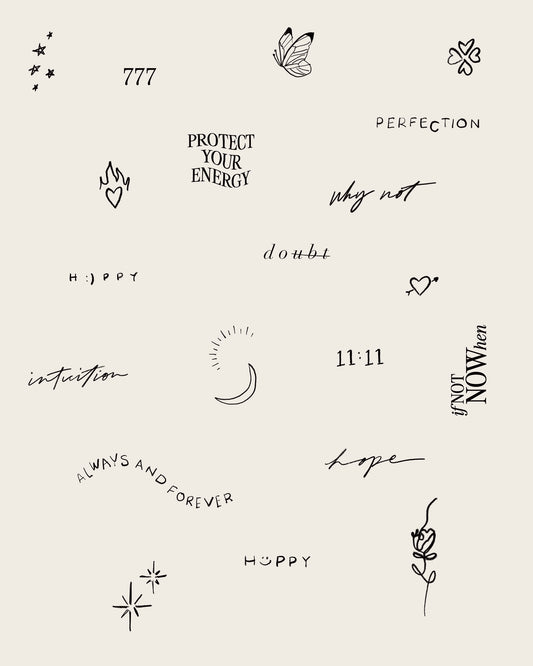 777
PERFECTION
PROTECT
YOUR
ENERGY
why not
doubt
H :) P P Y
11:11
if NOT
NOW hen
intuition
ALWAYS AND FOREVER
hope
HÜPPY